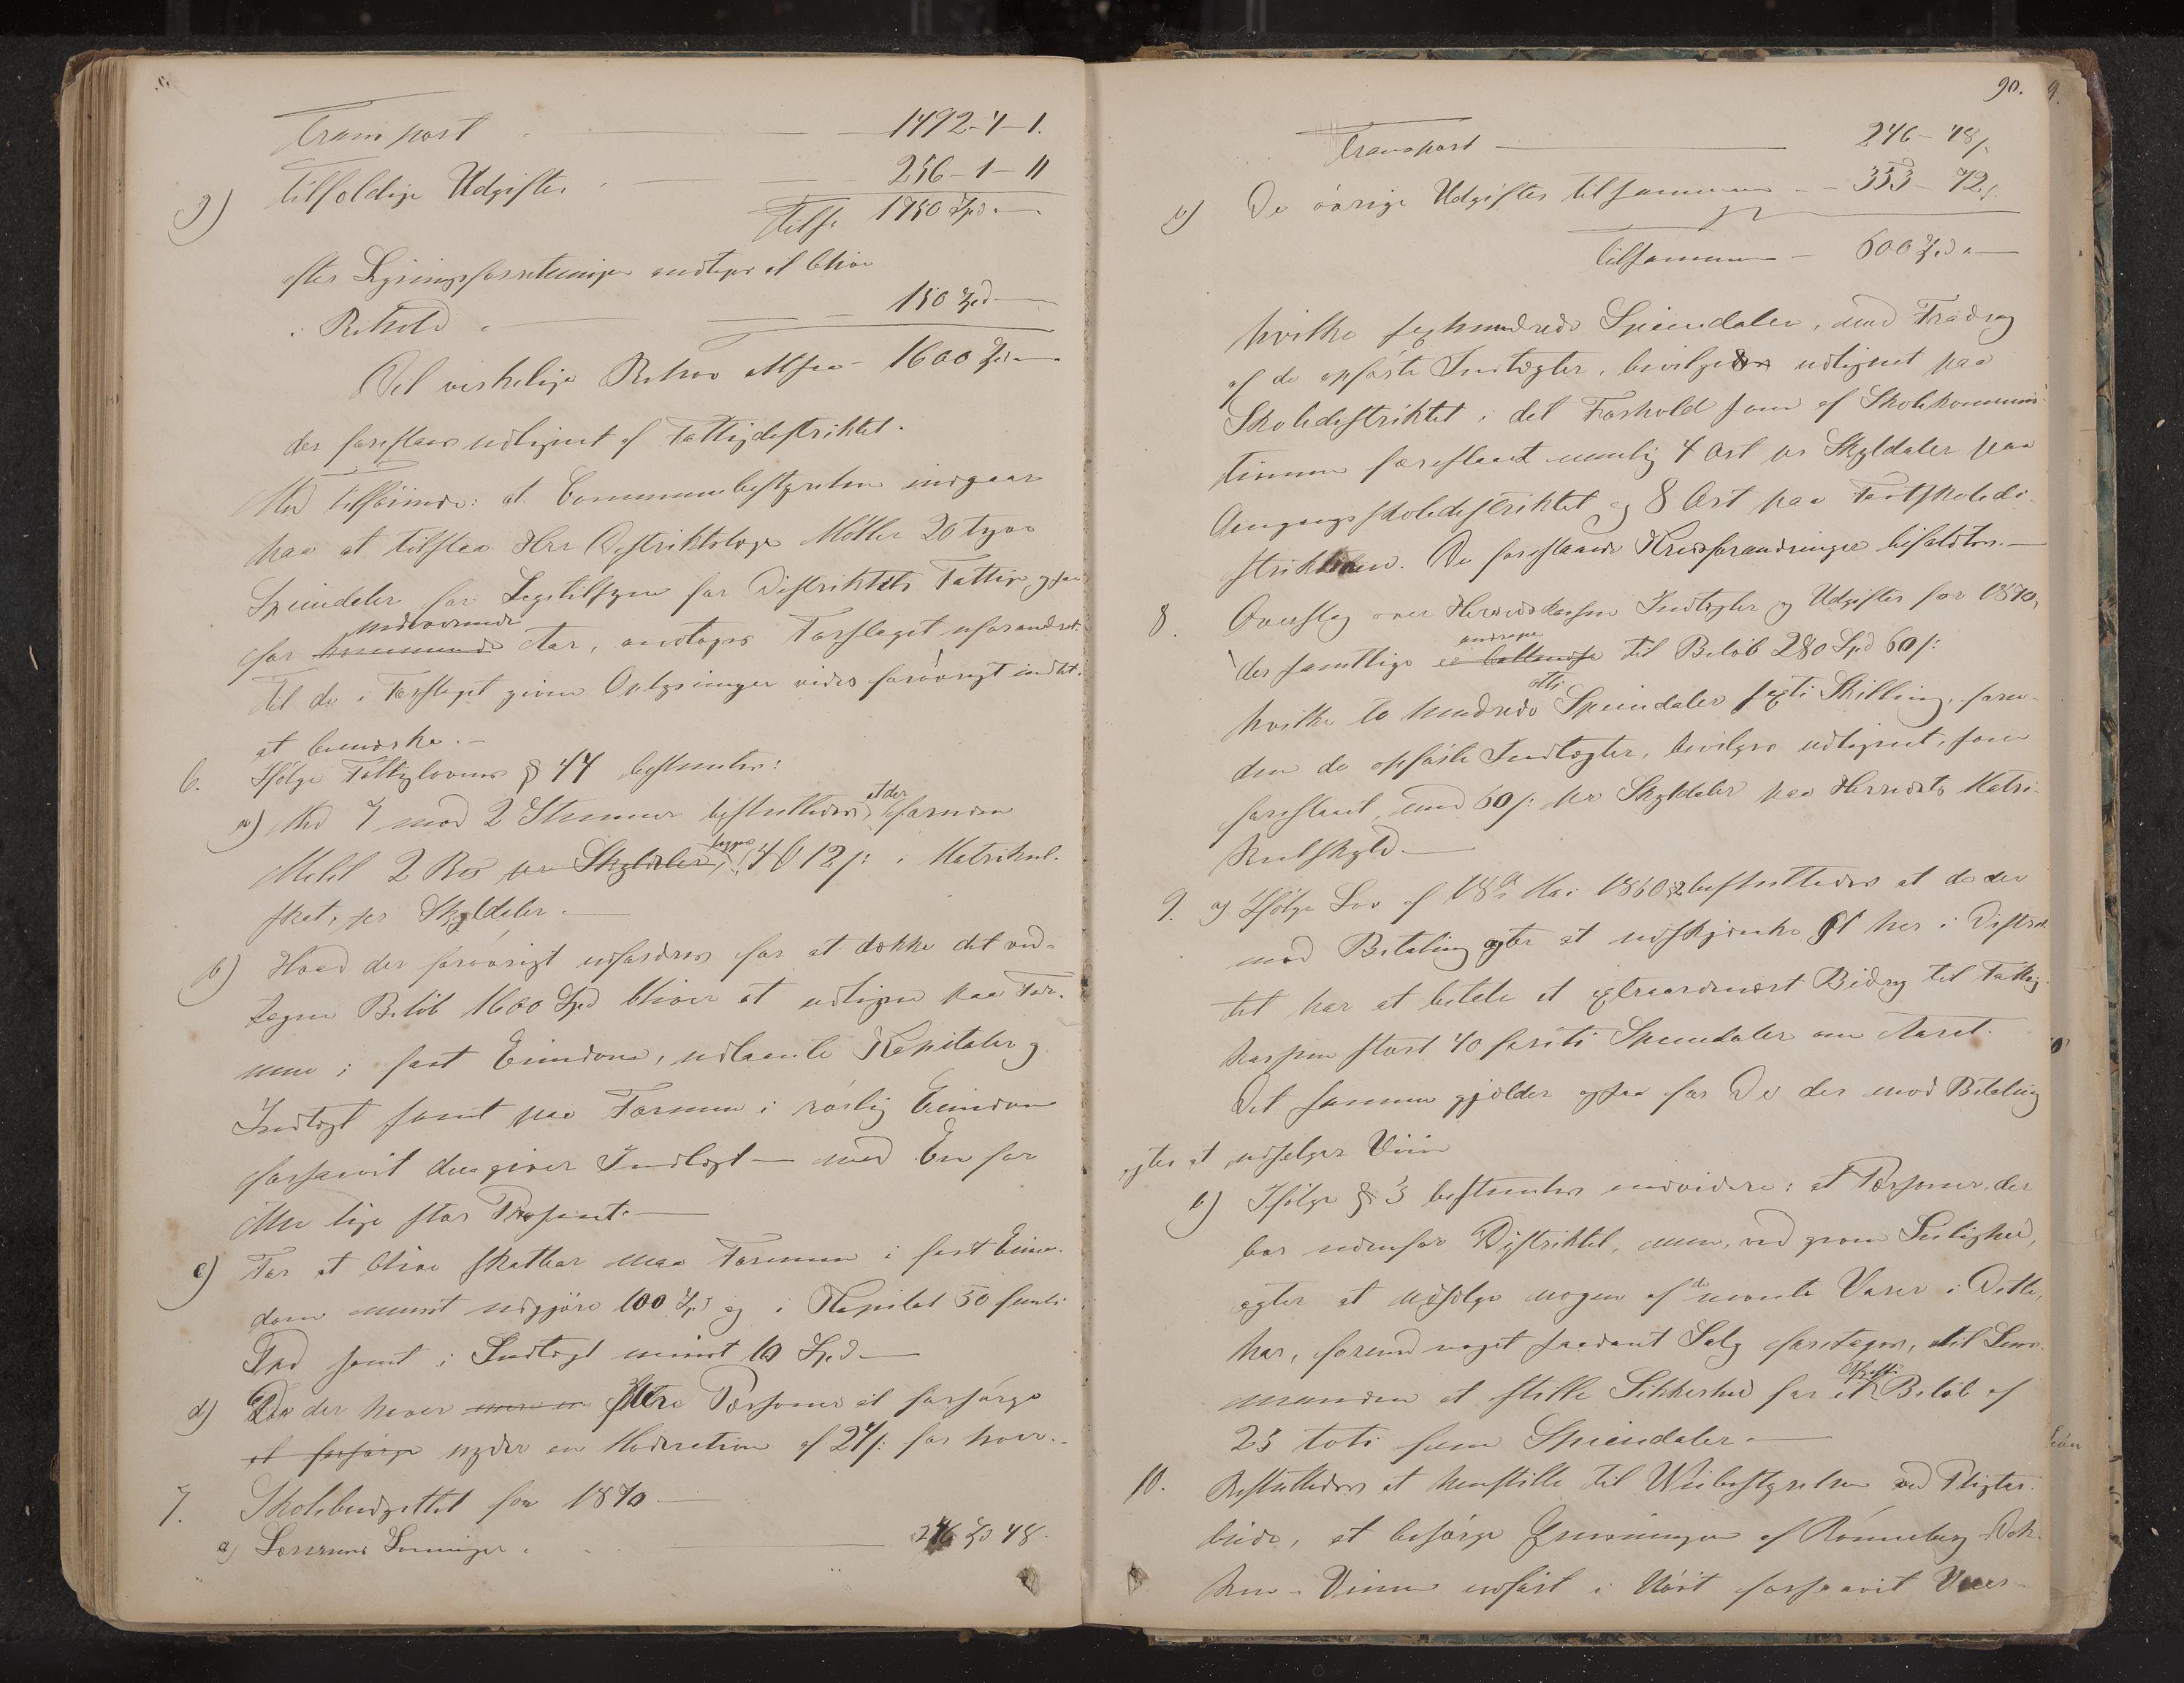 Transport 1492-4-1.
g) Tilfoldige Udgifter 256-1-11
Tilſ. 1750 Spd.
efter Ligningsforretningen antages at blive
i Behold 150 Spd
Det virkelige Behov altsaa 1600 Spd.
der foreslaaes udlignet af Fattigdistriktet.
Med Tilföiende: at Communebestyrelsen indgaar
paa at tilstaa Herr Distriktslæge Möller 20 tyve
Speciedaler for Lægetilsyn for Distriktets Fattige ogsaa
nuværende
for kommende Aar, antages Forslaget uforandret.
Til de i Forslaget givne Oplysninger vides forövrigt intet
at bemærke.
6. Ifölge Fattiglovens § 44 bestemtes:
at der
a) Med 7 mod 2 Stemmer besluttedes, foruden
lægges
Melet 2 Bes pr Skyldaler, 12 s: i Matrikul-
skat, pr Skyldaler.
b) Hvad der forövrigt udfordres for at dække det ved-
tagne Belöb 1600 Spd bliver at udligne paa For-
mue i fast Eiendom, udlaante Kapitaler og
Indtægt samt paa Formue i rörlig Eiendom
forsaavit den giver Indtægt — med En for
Alle lige stor Prosent.
c) For at blive skatbar maa Formuen i fast Eien-
dom mindst udgjöre 100 Spd og i Kapital 50 femti
Spd samt i Indtægt mindst 10 Spd
d) Den der haver mere en flere Personer at forsörge
at forsörge nyder en Moderation af 24 s: for hver.
7. Skolebudgettet for 1870
a) Lærernes Lönninger 246 Spd 48.
90.
Transport 246 - 48 s
b) De övrige Udgifter tilsammen 353 - 72 s.
Tilsammen 600 Spd.
hvilke sexhundrede Speciedaler, med Fradrag
af de opförte Indtægter, bevilges udlignet paa
Skoledistriktet i det Forhold som af Skolekommis-
sionen foreslaaet nemlig 4 Ort pr Skyldaler paa
Omgangsskoledistriktet og 8 Ort paa Fastskoledi-
strikterne. De foreslaaede Kredsforandringer bifaldtes.
8. Overslag over Herredskassens Indtægter og Udgifter for 1870,
andrager
der samtlige til Belöb 280 Spd 60 s:
otti
hvilke to hundrede Speciedaler sexti Skilling, foru-
den de opförte Indtægter, bevilges udlignet, som
foreslaaet, med 60 s: pr Skyldaler paa Herredets Matri-
kulskyld.
9. a) Ifölge Lov af 18 Mai 1860 § 2 besluttedes at de der
mod Betaling agter at udskjenke Öl her i Distrik-
tet har at betale et extraordinært Bidrag til Fattig-
kassen stort 40 förti Speciedaler om Aaret.
Det samme gjælder ogsaa for De der mod Betaling
agter at udsælger Viin
b) Ifölge § 3 bestemtes endvidere: at Personer, der
bor udenfor Distriktet, men, ved given Leilighed,
de
agter at udsælge nogen af nævnte Varer i Dette,
har, forend noget saadant Salg foretages, til Lens-
manden at stille Sikkerhed for et Belöb af
25 toti fem Speciedaler.
10. Besluttedes at henstille til Veibestyrelsen ved Pligtar-
beide, at besörge Grusningen af Rönneberg Bak-
ken - Veien udfört i Höst forsaavit Veer-